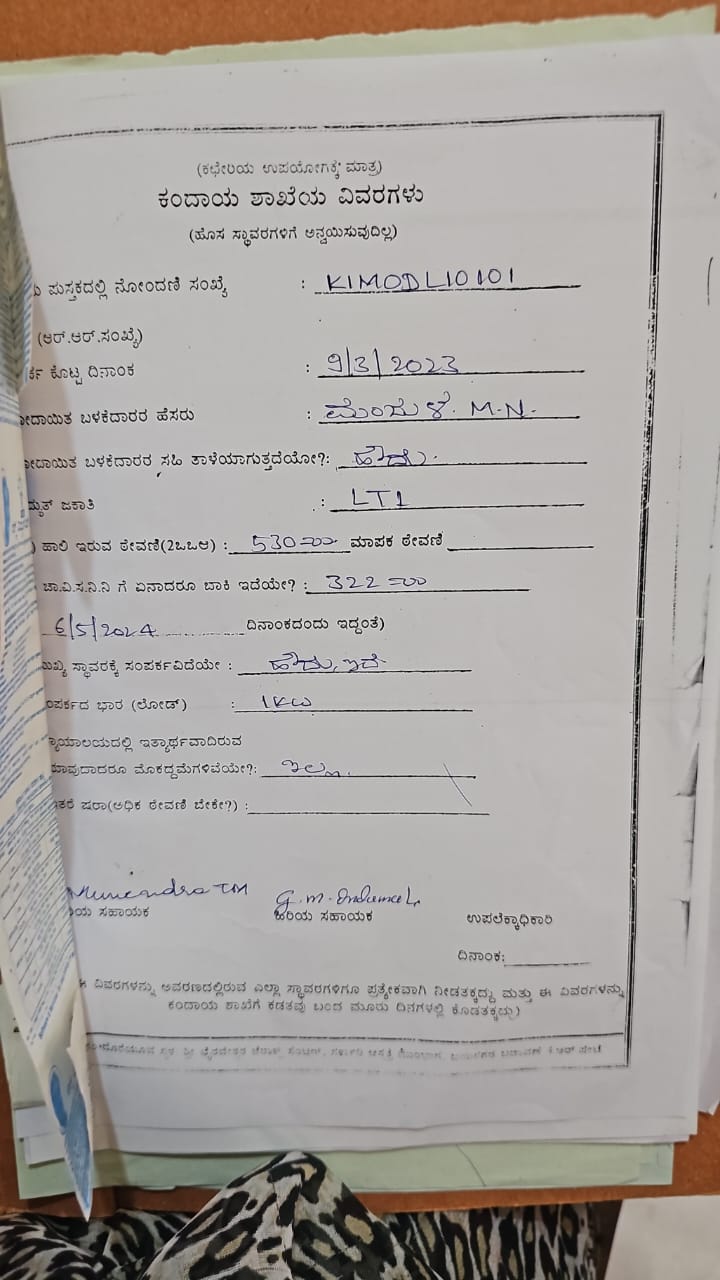 (ಕಛೇರಿಯ ಉಪಯೋಗಕ್ಕೆ ಮಾತ್ರ)
ಕಂದಾಯ ಶಾಖೆಯ ವಿವರಗಳು
(ಹೊಸ ಸ್ಥಾವರಗಳಿಗೆ ಅನ್ವಯಿಸುವುದಿಲ್ಲ)
ಪುಸ್ತಕದಲ್ಲಿ ನೋಂದಣಿ ಸಂಖ್ಯೆ : KIMODL10101
(ಆರ್.ಆರ್.ಸಂಖ್ಯೆ)
ಕೊಟ್ಟ ದಿನಾಂಕ : 9/3/2023
ಬಳಕೆದಾರರ ಹೆಸರು : M.N.
ಬಳಕೆದಾರರ ಸಹಿ ತಾಳೆಯಾಗುತ್ತದೆಯೋ?: ಹೌದು.
ಜಕಾತಿ : LT1
) ಹಾಲಿ ಇರುವ ಠೇವಣಿ(2ಎಎಆ) : 530=00 ಮಾಪಕ ಠೇವಣಿ
ಚಾ.ವಿ.ಸ.ನಿ.ನಿ ಗೆ ಏನಾದರೂ ಬಾಕಿ ಇದೆಯೇ? : 322=00
6/5/2024 ದಿನಾಂಕದಂದು ಇದ್ದಂತೆ)
ಸ್ಥಾವರಕ್ಕೆ ಸಂಪರ್ಕವಿದೆಯೇ : ಹೌದು, ಇದೆ
ಭಾರ (ಲೋಡ್) : 1KW
ಇತ್ಯಾರ್ಥವಾದಿರುವ
ಮೊಕದ್ದಮೆಗಳಿವೆಯೇ?: ಇಲ್ಲ.
ಷರಾ(ಅಧಿಕ ಠೇವಣಿ ಬೇಕೇ?) :
Munendra TM G.M.
ಸಹಾಯಕ ಹಿರಿಯ ಸಹಾಯಕ ಉಪಲೆಕ್ಕಾಧಿಕಾರಿ
ದಿನಾಂಕ:
ಈ ವಿವರಗಳನ್ನು ಆವರಣದಲ್ಲಿರುವ ಎಲ್ಲಾ ಸ್ಥಾವರಗಳಿಗೂ ಪ್ರತ್ಯೇಕವಾಗಿ ನೀಡತಕ್ಕದ್ದು ಮತ್ತು ಈ ವಿವರಗಳನ್ನು
ಕಂದಾಯ ಶಾಖೆಗೆ ಕಡತವು ಬಂದ ಮೂರು ದಿನಗಳಲ್ಲಿ ಕೊಡತಕ್ಕದ್ದು)